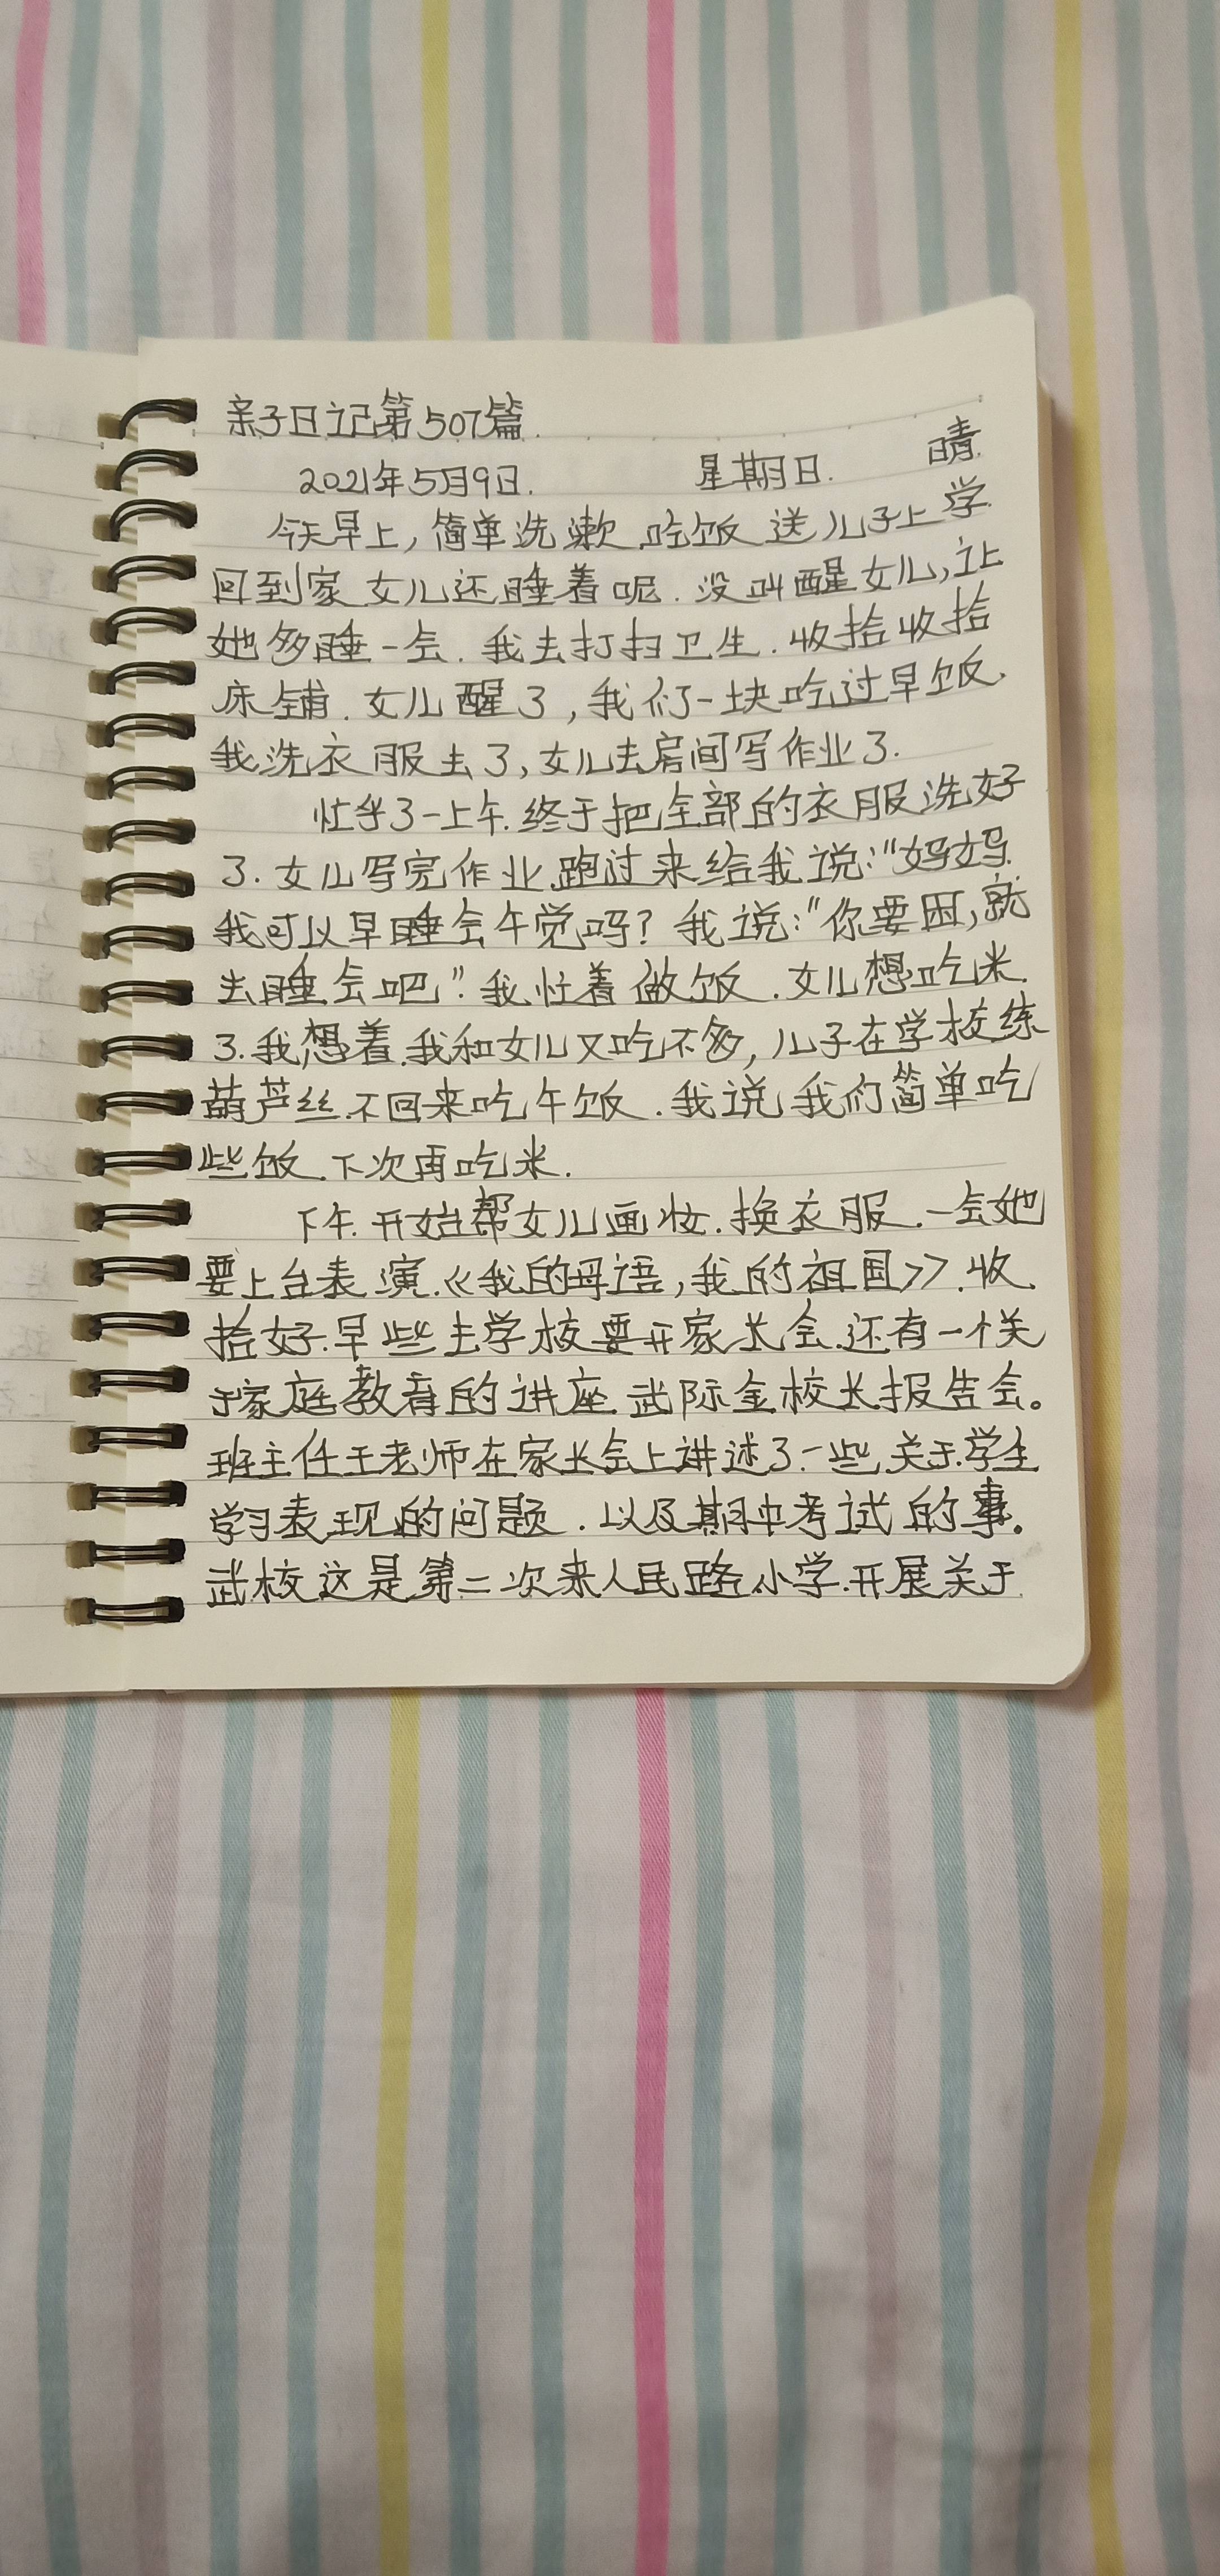 亲子日记第507篇.
2021年5月9日. 星期日. 晴.
今天早上,简单洗漱.吃饭 送儿子上学.
回到家 女儿还睡着呢.没叫醒女儿,让
她多睡一会.我去打扫卫生.收拾收拾
床铺.女儿醒了,我们一块吃过早饭.
我洗衣服去了,女儿去房间写作业了.
忙乎了一上午.终于把全部的衣服洗好
了.女儿写完作业.跑过来给我说:"妈妈.
我可以早睡会午觉吗? 我说:"你要困,就
去睡会吧".我忙着做饭.女儿想吃米.
了.我想着.我和女儿又吃不多,儿子在学校练
葫芦丝.不回来吃午饭.我说 我们简单吃
些饭.下次再吃米.
下午.开始帮女儿画妆.换衣服.一会她
要上台表演.《我的母语,我的祖国》.收
拾好.早些去学校要开家长会.还有一个关
于家庭教育的讲座.武际金校长报告会。
班主任王老师在家长会上讲述了一些.关于.学生
学习表现的问题.以及期中考试的事。
武校这是第二次来人民路小学.开展关于